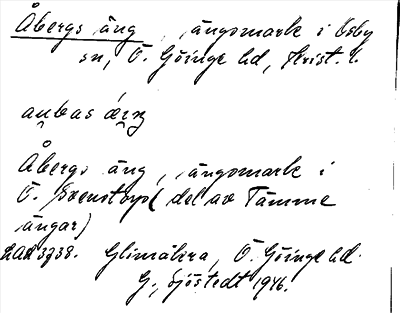 Åbergs äng, ängsmark i Osby
sn, Ö. Göinge hd, Krist. l.
Åbergs äng, ängsmark i
Ö. Svenstorp (del av Tämme
ängar)
LAL 3738. Glimåkra, Ö. Göinge hd.
G. Sjöstedt 1946.